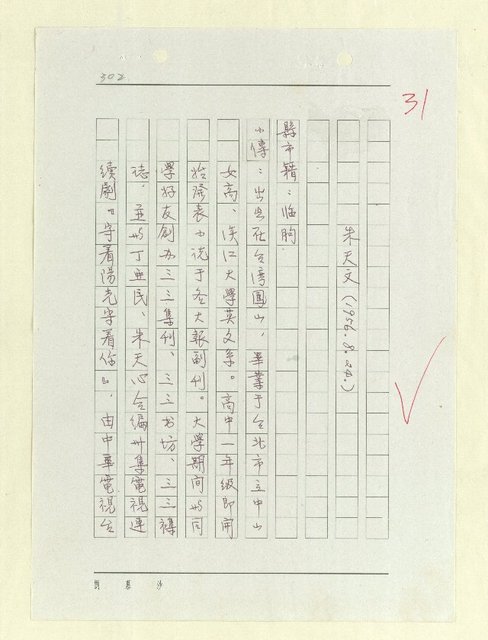 302.
31
朱天文(1956.8.24.)
縣市籍：临朐
小傳：出生在台湾鳳山，畢業于台北市立中山
女高、淡江大學英文系。高中一年級即開
始發表小说于各大報副刊。大学期间与同
學好友創办三三集刊、三三书坊、三三雜
誌，並与丁亞民、朱天心合編卅集電視連
續劇『守着陽光守着你』，由中華電視台
劉慕沙